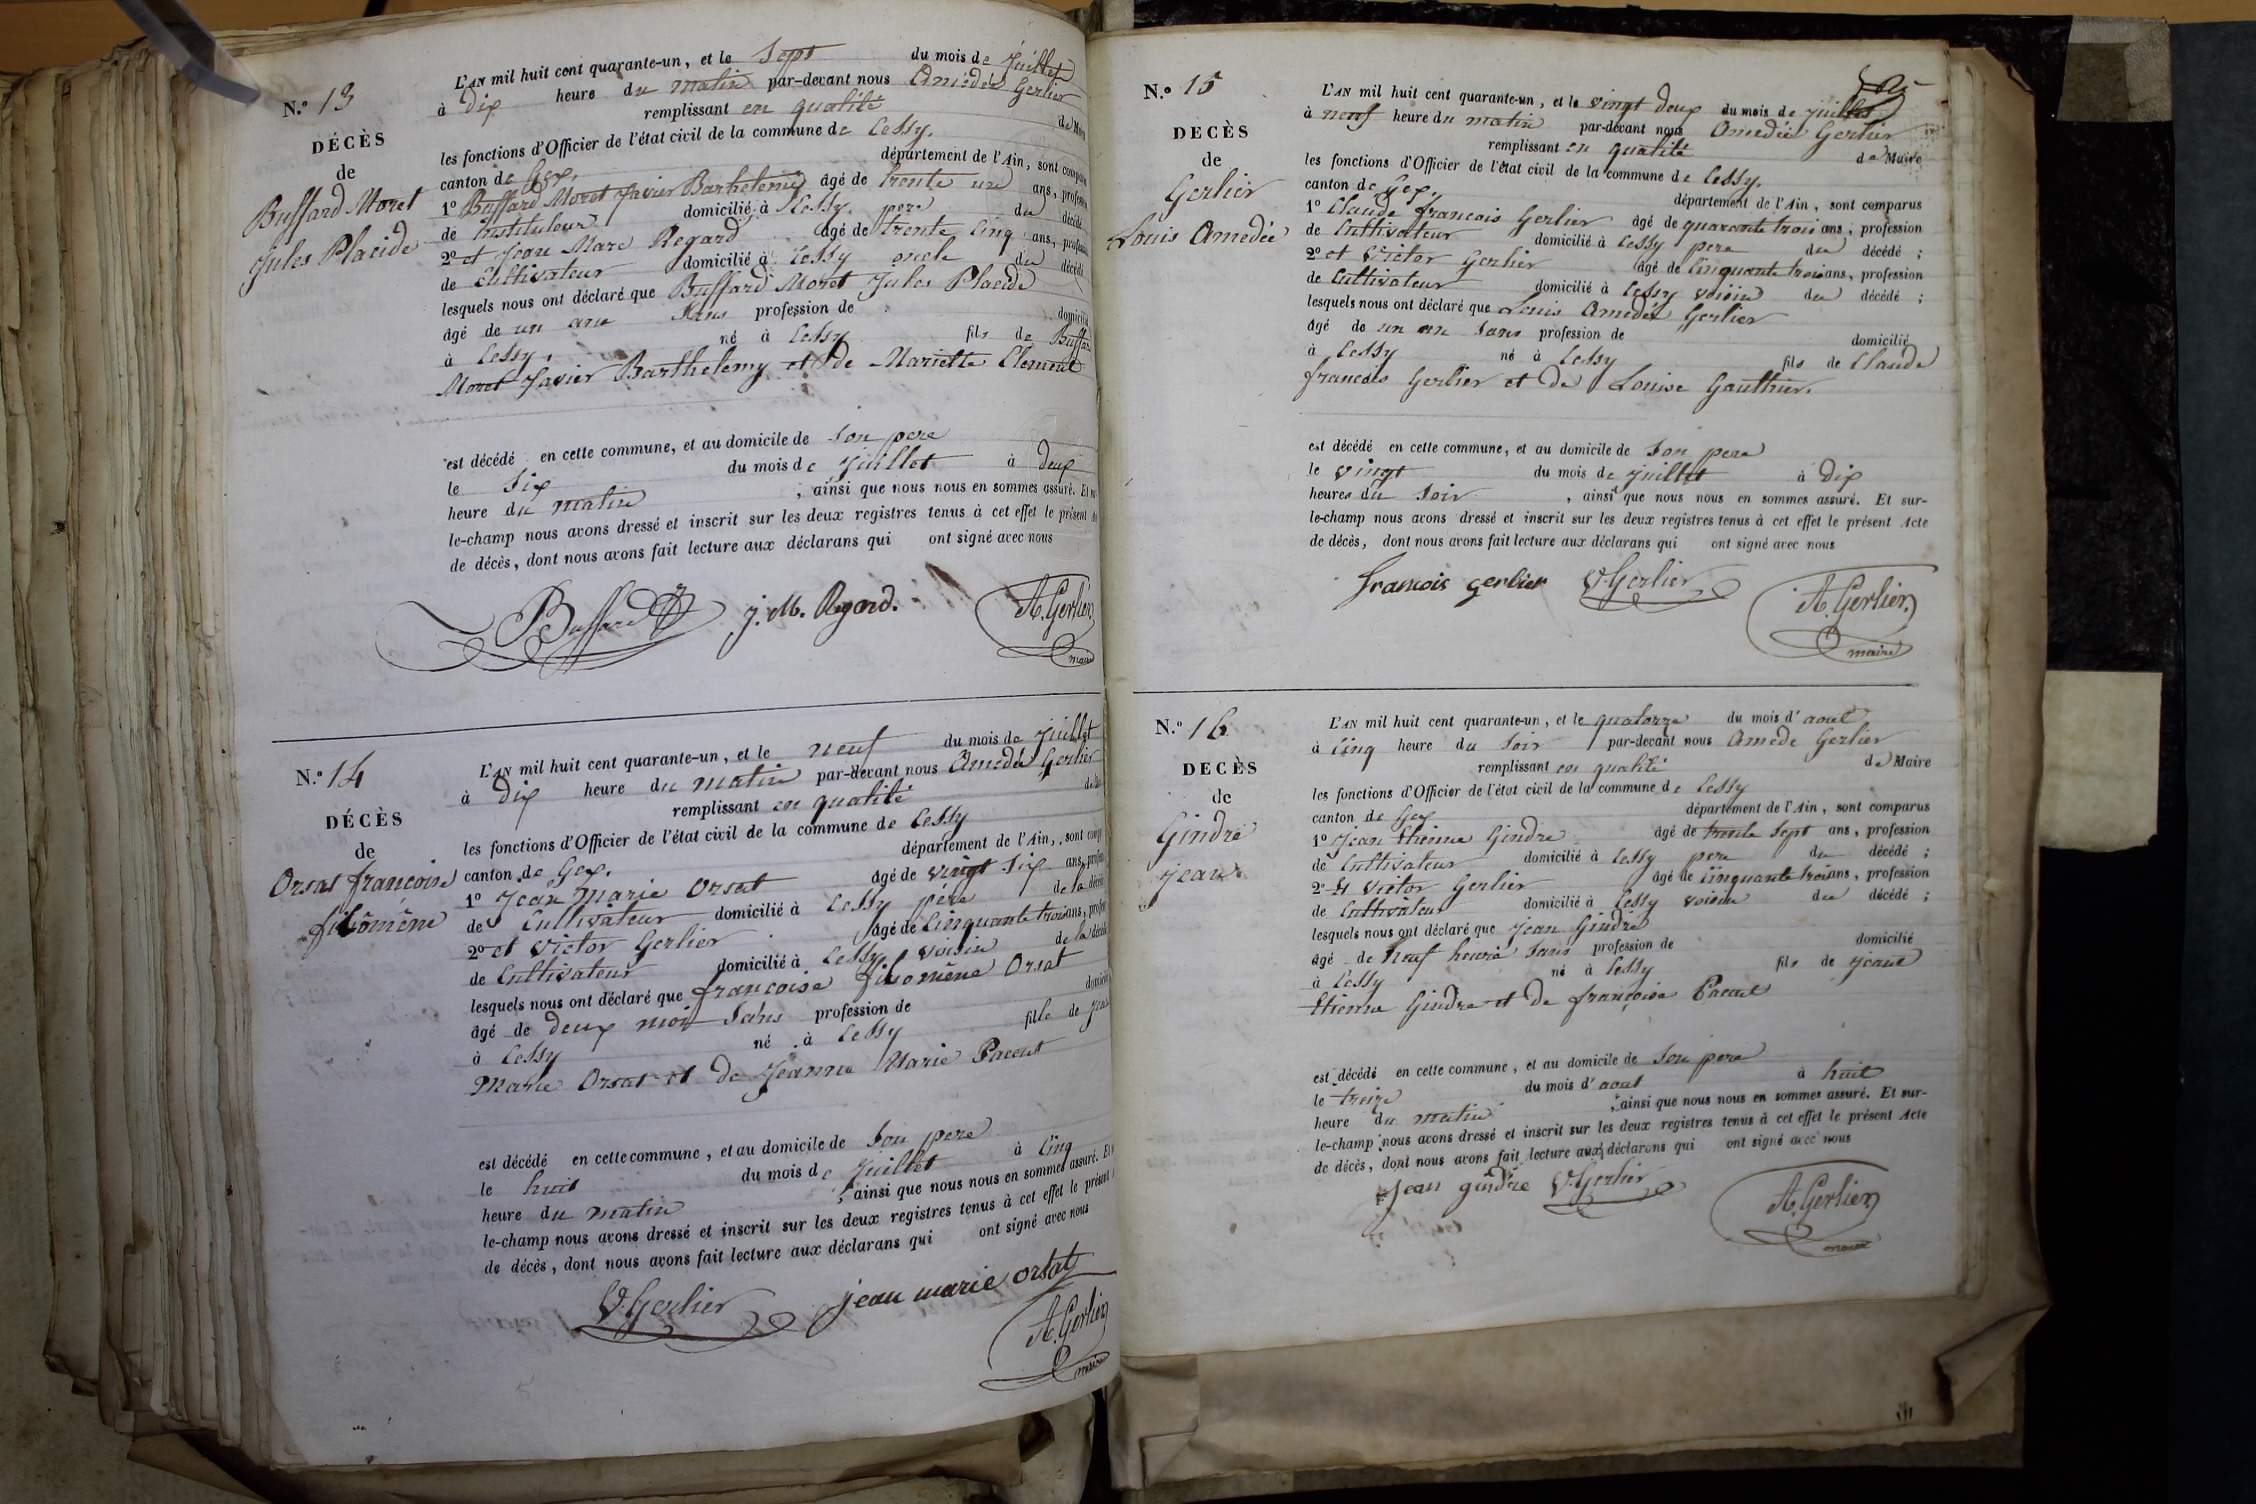 N.º 13
DÉCÈS
de
Buffard Moret
Jules Placide
L'AN mil huit cent quarante-un, et le Sept du mois de juillet
à dix heure du matin par-devant nous Amédée Gerlier
remplissant en qualité de Maire
les fonctions d'Officier de l'état civil de la commune de Cessy.
canton de Gex. département de l'Ain, sont comparus
1º Buffard Moret Xavier Barthelemy âgé de trente un ans, profession
de instituteur domicilié à Cessy pere du décédé
2º et Jean Marc Regard âgé de trente cinq ans, profession
de Cultivateur domicilié à Cessy oncle du décédé
lesquels nous ont déclaré que Buffard Moret Jules Placide
âgé de un ans Sans profession de domicilié
à Cessy. né à Cessy fils de Buffard
Moret Xavier Barthelemy et de Mariette Clement
est décédé en cette commune, et au domicile de Son pere
le Six du mois de juillet à deux
heure du matin, ainsi que nous nous en sommes assuré. Et sur-
le-champ nous avons dressé et inscrit sur les deux registres tenus à cet effet le présent
de décès, dont nous avons fait lecture aux déclarans qui ont signé avec nous
Buffard J. M. Regard. A. Gerlier
maire
N.º 14
DÉCÈS
de
Orsat françoise
filomène
L'AN mil huit cent quarante-un, et le neuf du mois de juillet
à dix heure du matin par-devant nous Amédée Gerlier
remplissant en qualité
les fonctions d'Officier de l'état civil de la commune de Cessy
canton de Gex. département de l'Ain, sont comp
1º Jean Marie Orsat âgé de vingt Six ans, profes
de Cultivateur domicilié à Cessy père de la décéd
2º et Victor Gerlier âgé de Cinquante trois ans, profes
de Cultivateur domicilié à Cessy voisin de la décéd
lesquels nous ont déclaré que françoise filomène Orsat
âgé de deux mois Sans profession de domicilié
à Cessy né à Cessy fille de Jean
Marie Orsat et de Jeanne Marie Pacout
est décédé en cette commune, et au domicile de Son pere
le huit du mois de juillet à Cinq
heure du matin, ainsi que nous nous en sommes assuré. Et
le-champ nous avons dressé et inscrit sur les deux registres tenus à cet effet le présent
de décès, dont nous avons fait lecture aux déclarans qui ont signé avec nous
V. Gerlier jean marie orsat
A. Gerlier
maire
N.º 15
DECÈS
de
Gerlier
Louis Amedée
L'AN mil huit cent quarante-un, et le vingt deux du mois de juillet
à neuf heure du matin par-devant nous Amedée Gerlier
remplissant en qualité de Maire
les fonctions d'Officier de l'état civil de la commune de Cessy.
canton de Gex. département de l'Ain, sont comparus
1º Claude francois Gerlier âgé de quarante trois ans, profession
de Cultivateur domicilié à Cessy pere du décédé;
2º et Victor Gerlier âgé de Cinquante trois ans, profession
de Cultivateur domicilié à Cessy voisin du décédé;
lesquels nous ont déclaré que Louis Amedée Gerlier
âgé de un an Sans profession de domicilié
à Cessy né à Cessy fils de Claude
francois Gerlier et de Louise Gauthier.
est décédé en cette commune, et au domicile de Son pere
le vingt du mois de juillet à dix
heures du Soir, ainsi que nous nous en sommes assuré. Et sur-
le-champ nous avons dressé et inscrit sur les deux registres tenus à cet effet le présent Acte
de décès, dont nous avons fait lecture aux déclarans qui ont signé avec nous
francois gerlier V. Gerlier A. Gerlier
maire
N.º 16
DECÈS
de
Gindre
jean
L'AN mil huit cent quarante-un, et le quatorze du mois d'aout
à Cinq heure du Soir par-devant nous Amede Gerlier
remplissant en qualité de Maire
les fonctions d'Officier de l'état civil de la commune de Cessy
canton de Gex département de l'Ain, sont comparus
1º Jean Etienne Gindre âgé de trente Sept ans, profession
de Cultivateur domicilié à Cessy pere du décédé;
2º Et Victor Gerlier âgé de Cinquante trois ans, profession
de Cultivateur domicilié à Cessy voisin du décédé;
lesquels nous ont déclaré que Jean Gindre
âgé de neuf heure Sans profession de domicilié
à Cessy né à Cessy fils de jean
Etienne Gindre et de françoise Pacout
est décédé en cette commune, et au domicile de Son pere
le treize du mois d'aout à huit
heure du matin, ainsi que nous nous en sommes assuré. Et sur-
le-champ nous avons dressé et inscrit sur les deux registres tenus à cet effet le présent Acte
de décès, dont nous avons fait lecture aux déclarans qui ont signé avec nous
jean gindre V. Gerlier A. Gerlier
maire